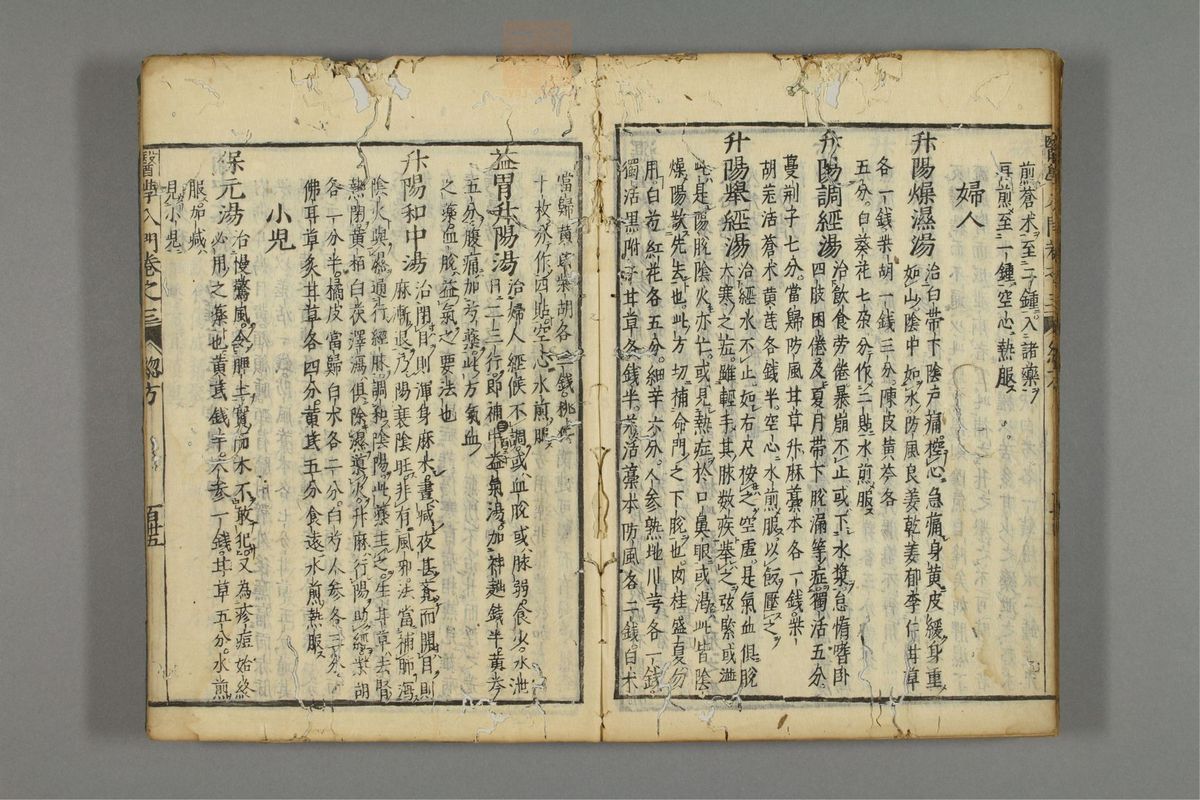 煎蒼朮至二鍾入諸藥
再煎至一鍾空心熱服
婦人
升陽燥濕湯 治白帶下陰戶痛控心急痛身黃皮緩身重
如山陰中如水防風良姜乾姜郁李仁甘草
各一錢柴胡一錢三分陳皮黃芩各
五分白葵花七朶分作二貼水煎服
升陽調經湯 治飲食勞倦暴崩不止或下水漿怠惰嗜臥
四肢困倦及夏月帶下脫漏等症獨活五分
蔓荊子七分當歸防風甘草升麻藁本各一錢柴
胡羌活蒼朮黃芪各錢半空心水煎服以飯壓之
升陽舉經湯 治經水不止如右尺按之空虛是氣血俱脫
大寒之症雖輕手其脉數疾舉之弦緊或濇
此是陽脫陰火亦亡或見熱症於口鼻眼或渴此皆陰
燥陽散先去也此方切補命門之下脫也肉桂盛夏勿
用白芍紅花各五分細辛六分人參熟地川芎各一錢
獨活黑附子甘草各錢半羌活藁本防風各二錢白朮
當歸黃芪柴胡各
十枚分作四貼空心水煎服
益胃升陽湯 治婦人經候不調或血脫或脉弱食少水泄
日二三行即補中益氣湯加神麯錢半黃芩
五分腹痛加芍藥此方氣血
之藥血脫益氣之要法也
升陽和中湯 治閉目則渾身麻木晝減夜甚若而開目則
麻漸退乃陽衰陰旺非有風邪法當補肺瀉
陰火與濕通行經脉調和陰陽此藥主之生甘草去腎
熱閉黃栢白茯澤瀉俱除濕導火升麻行陽助經柴胡
各一分半橘皮當歸白朮各二分白芍人參各三分
佛耳草炙甘草各四分黃芪五分食遠水煎熱服
小兒
保元湯 治慢驚風食脾土寬而木不敢犯又為疹痘始終
必用之藥也黃芪錢半人參一錢甘草五分水煎
服加減
見小兒
醫學入門卷之三
總方
百廿五